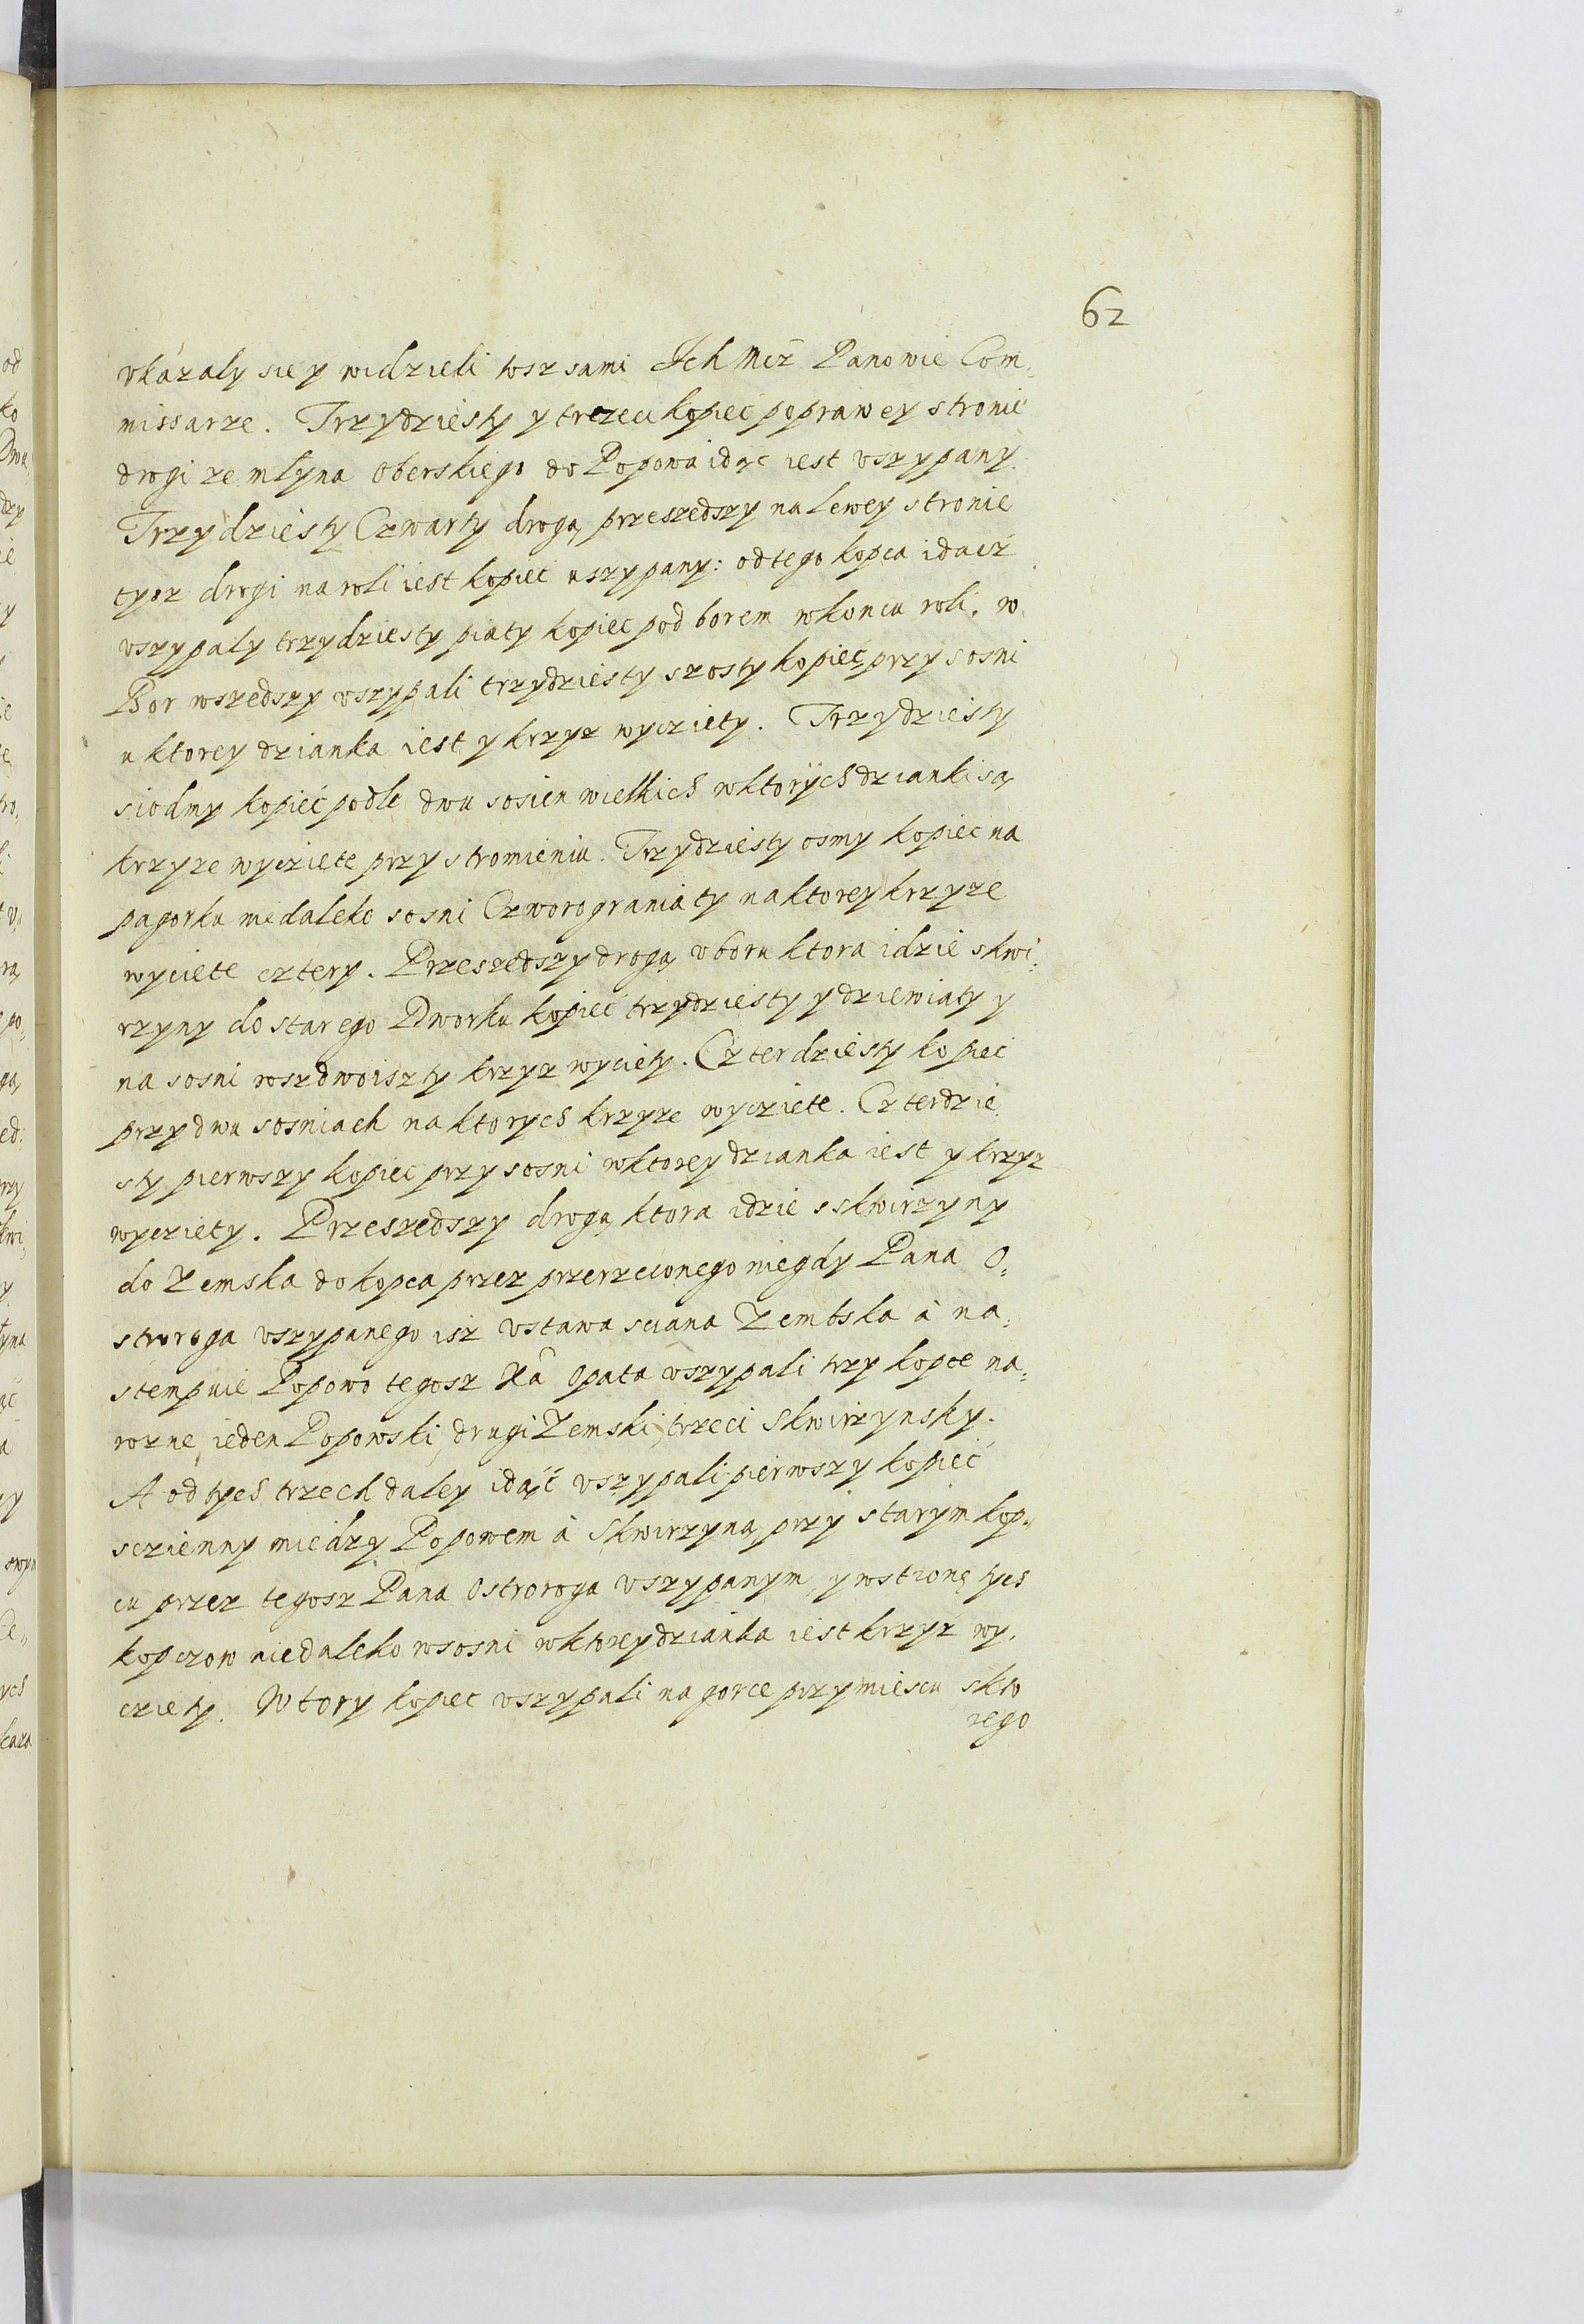 62
vkázaly sie y widzieli tosz sami Ich Mcz Panowie Com,
missarze. Trzydziesty y trzeci kopiec po prawey stronie
drogi ze młyna Oberskiego do Popowa idąc iest vszypany.
Trzydziesty Czwarty drogą przeszedszy na lewey stronie
tyoz drogi na roli iest kopiec uszypany: od tego kopca idacz
vszypaly trzydziesty piaty kopiec pod borem w koncu roli. w
Bor wszedszy vszypali trzydziesty szosty kopiec przy sosni
u ktorey dzianka iest y krzyz wyciety. Trzydziesty
siodmy kopiec podle dwu sosien wielkich w ktorych dzianki są
krzyze wycziete przy stromieniu. Trzydziesty osmy kopiec na
pagorku niedaleko sosni Czworograniaty na ktorey krzyze
wyciete cztery. Przeszedszy drogą v boru ktora idzie skwi,
rzyny do starego Dworku kopiec trzydziesty y dziewiaty y
na sosni roszdwoiszty krzyz wyciety. Czterdziesty kopiec
przy dwu sosniach na ktorych krzyze wycziete. Czterdzie
sty pierwszy kopiec przy sosni w ktorey dzianka iest y krzyz
wycziety. Przeszedszy drogą ktora idzie s skwirzyny
do Zemska do kopca przez przerzeczonego niegdy Pana O,
stroroga vszypanego isz vstawa sciana Zembska à na,
stempuie Popowo tegosz Xa Opata vszypali trzy kopce na,
rozne, ieden Popowski, drugi Zemski, trzeci Skwirzynsky.
A od tych trzech daley idąć vszypali pierwszy kopiec
sczienny miedzy Popowem à Skwirzyną przy starym kop,,
cu przez tegosz Pana Ostroroga vszypanym, y w stronę tych
kopczow niedaleko w sosni w ktorey dzianka iest krzyz wy,
cziety. Wtory kopiec vszypali na gorce przy miescu skto
rego